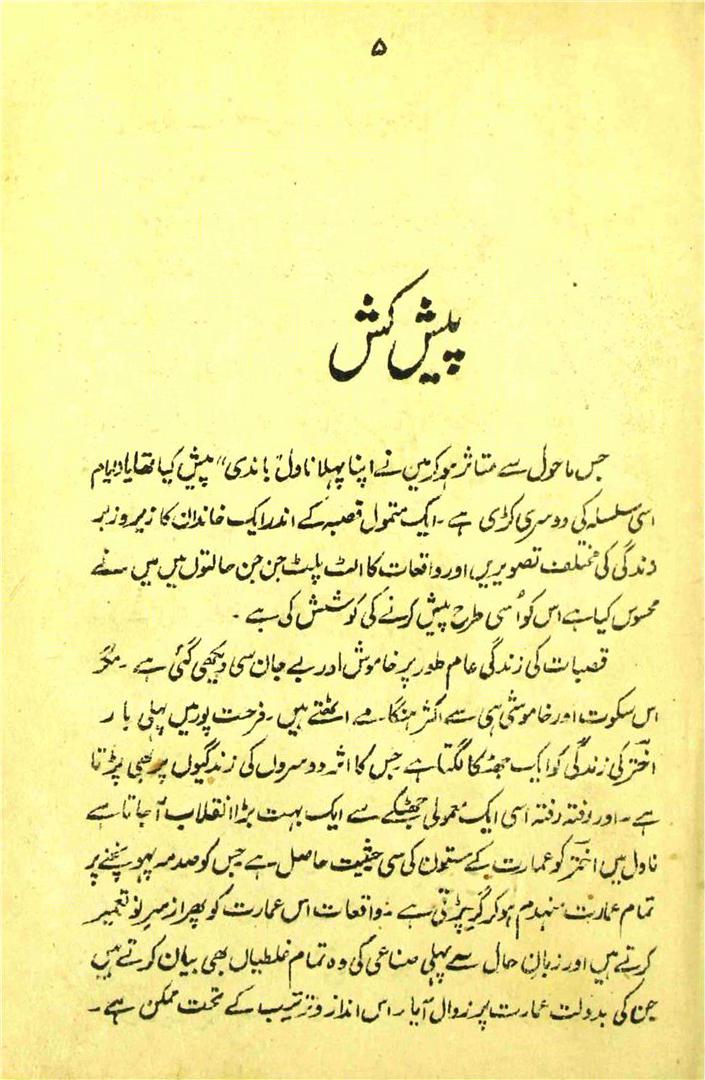 ۵
پیش کش
جس ماحول سے متاثر ہوکر مین نے اپنا پہلا ناول "باندی" پیش کیا تھا یادایام
اسی سلسلہ کی دوسری کڑی ہے ۔ ایک متمول قصبہ کے اندر ایک خاندان کا زیر و زبر
زندگی کی مختلف تصویریں اور واقعات کا الٹ پلٹ جن جن حالتوں میں میں نے
محسوس کیا ہے اس کو اُسی طرح پیش کرنے کی کوشش کی ہے ۔
قصبات کی زندگی عام طور پر خاموش اور بے جان سی دیکھی گئی ہے ۔ مگر
اس سکوت اور خاموشی ہی سے اکثر ہنگامے اٹھتے ہیں ۔ فرحت پور میں پہلی بار
اختر کی زندگی کو ایک جھٹکا لگتا ہے جس کا اثر دوسروں کی زندگیوں پر بھی پڑتا
ہے ۔ اور رفتہ رفتہ اسی ایک معمولی جھٹکے سے ایک بہت بڑا انقلاب آجاتا ہے
ناول میں اختر کو عمارت کے ستون کی سی حیثیت حاصل ہے جس کو صدمہ پہونچنے پر
تمام عمارت منہدم ہو کر گر پڑتی ہے ۔ واقعات اس عمارت کو پھر از سرِ نو تعمیر
کرتے ہیں اور زبانِ حال سے پہلی صناعی کی وہ تمام غلطیاں بھی بیان کرتے ہیں
جن کی بدولت عمارت پر زوال آیا ۔ اس انداز و ترتیب کے تحت ممکن ہے ۔